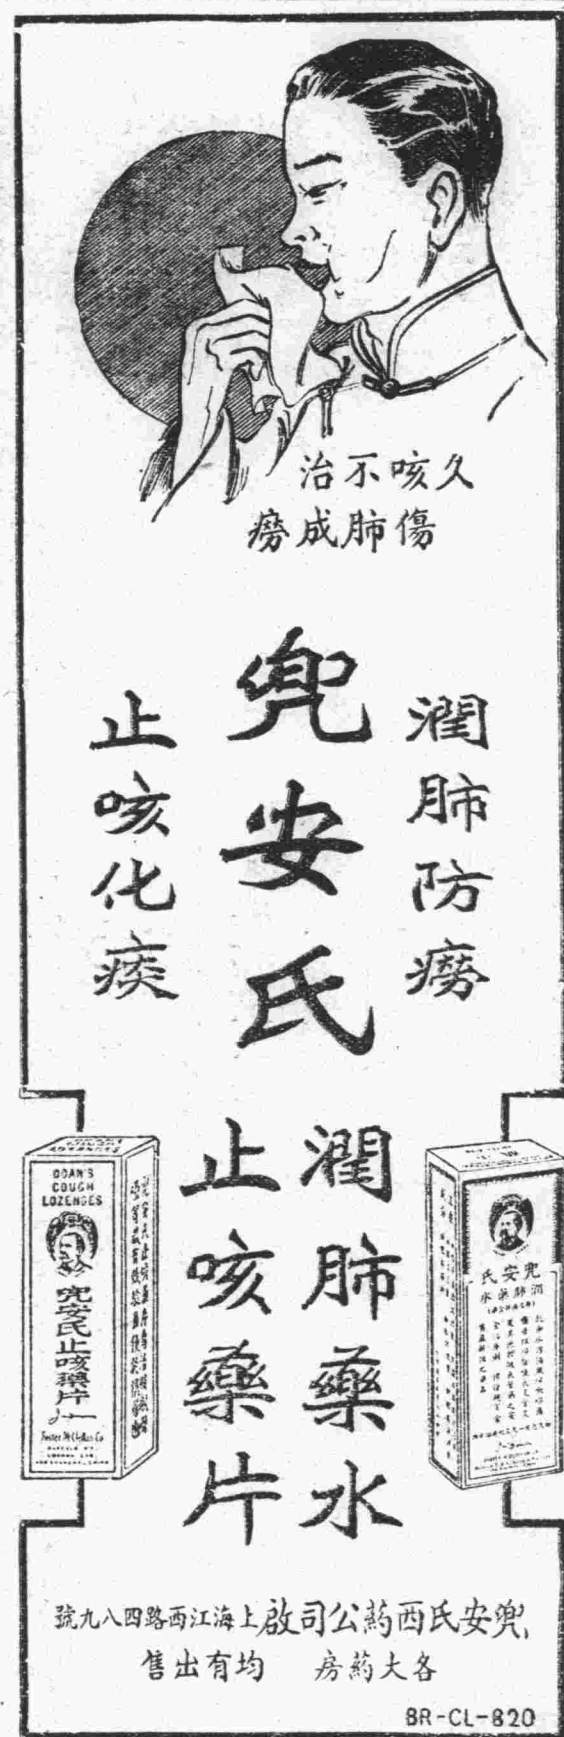 久咳不治
傷肺成癆
潤肺防癆
兜安氏
止咳化痰
潤肺藥水
止咳藥片
DOAN'S
COUGH
LOZENGES
兜安氏止咳藥片
Foster McClellan Co.
兜安氏
潤肺藥水
兜安氏西葯公司啟上海江西路四八九號
各大葯房 均有出售
BR-CL-820